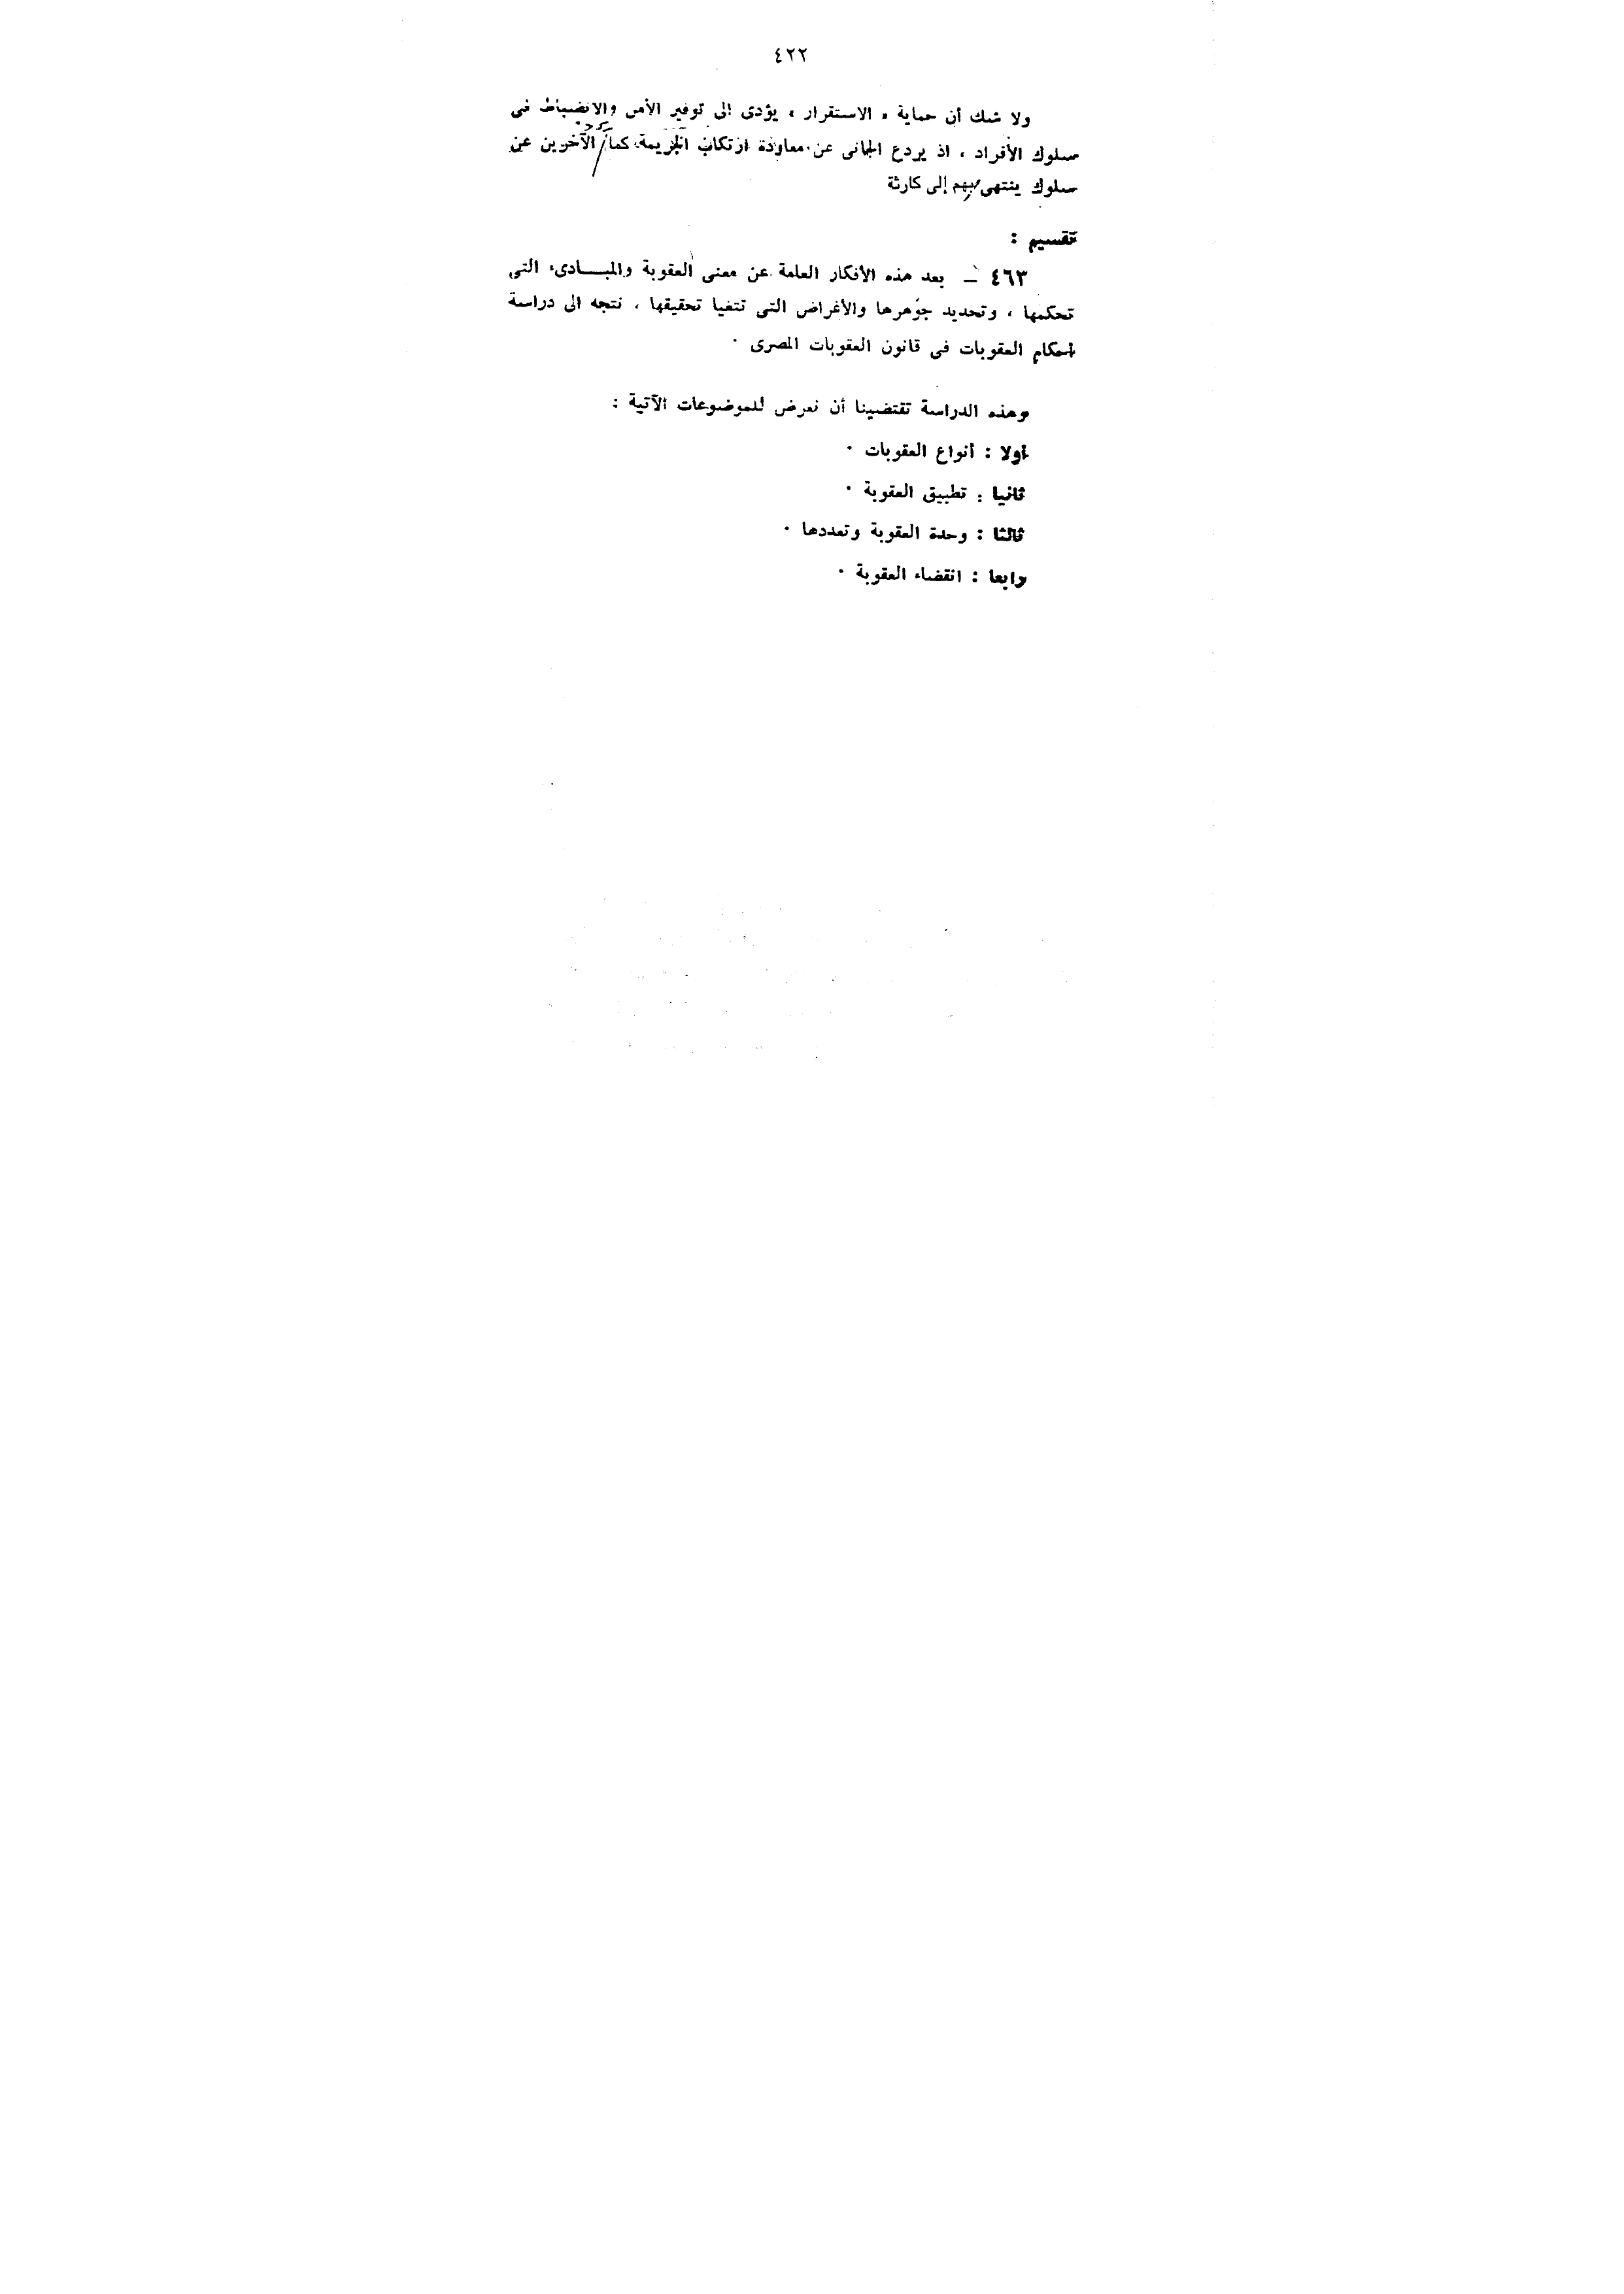 ٤٢٢
ولا شك أن حماية « الاستقرار » يؤدى الى توفير الأمن والانضباط فى
سلوك الأفراد ، اذ يردع الجانى عن معاودة ارتكاب الجريمة كما الآخرين عن
سلوك ينتهى بهم إلى كارثة
تقسيم :
٤٦٣ — بعد هذه الأفكار العامة عن معنى العقوبة والمبـــادىء التى
تحكمها ، وتحديد جوهرها والأغراض التى تتغيا تحقيقها ، نتجه الى دراسة
احكام العقوبات فى قانون العقوبات المصرى ٠
وهذه الدراسة تقتضينا أن نعرض للموضوعات الآتية :
أولا : أنواع العقوبات ٠
ثانيا : تطبيق العقوبة ٠
ثالثا : وحدة العقوبة وتعددها ٠
رابعا : انقضاء العقوبة ٠